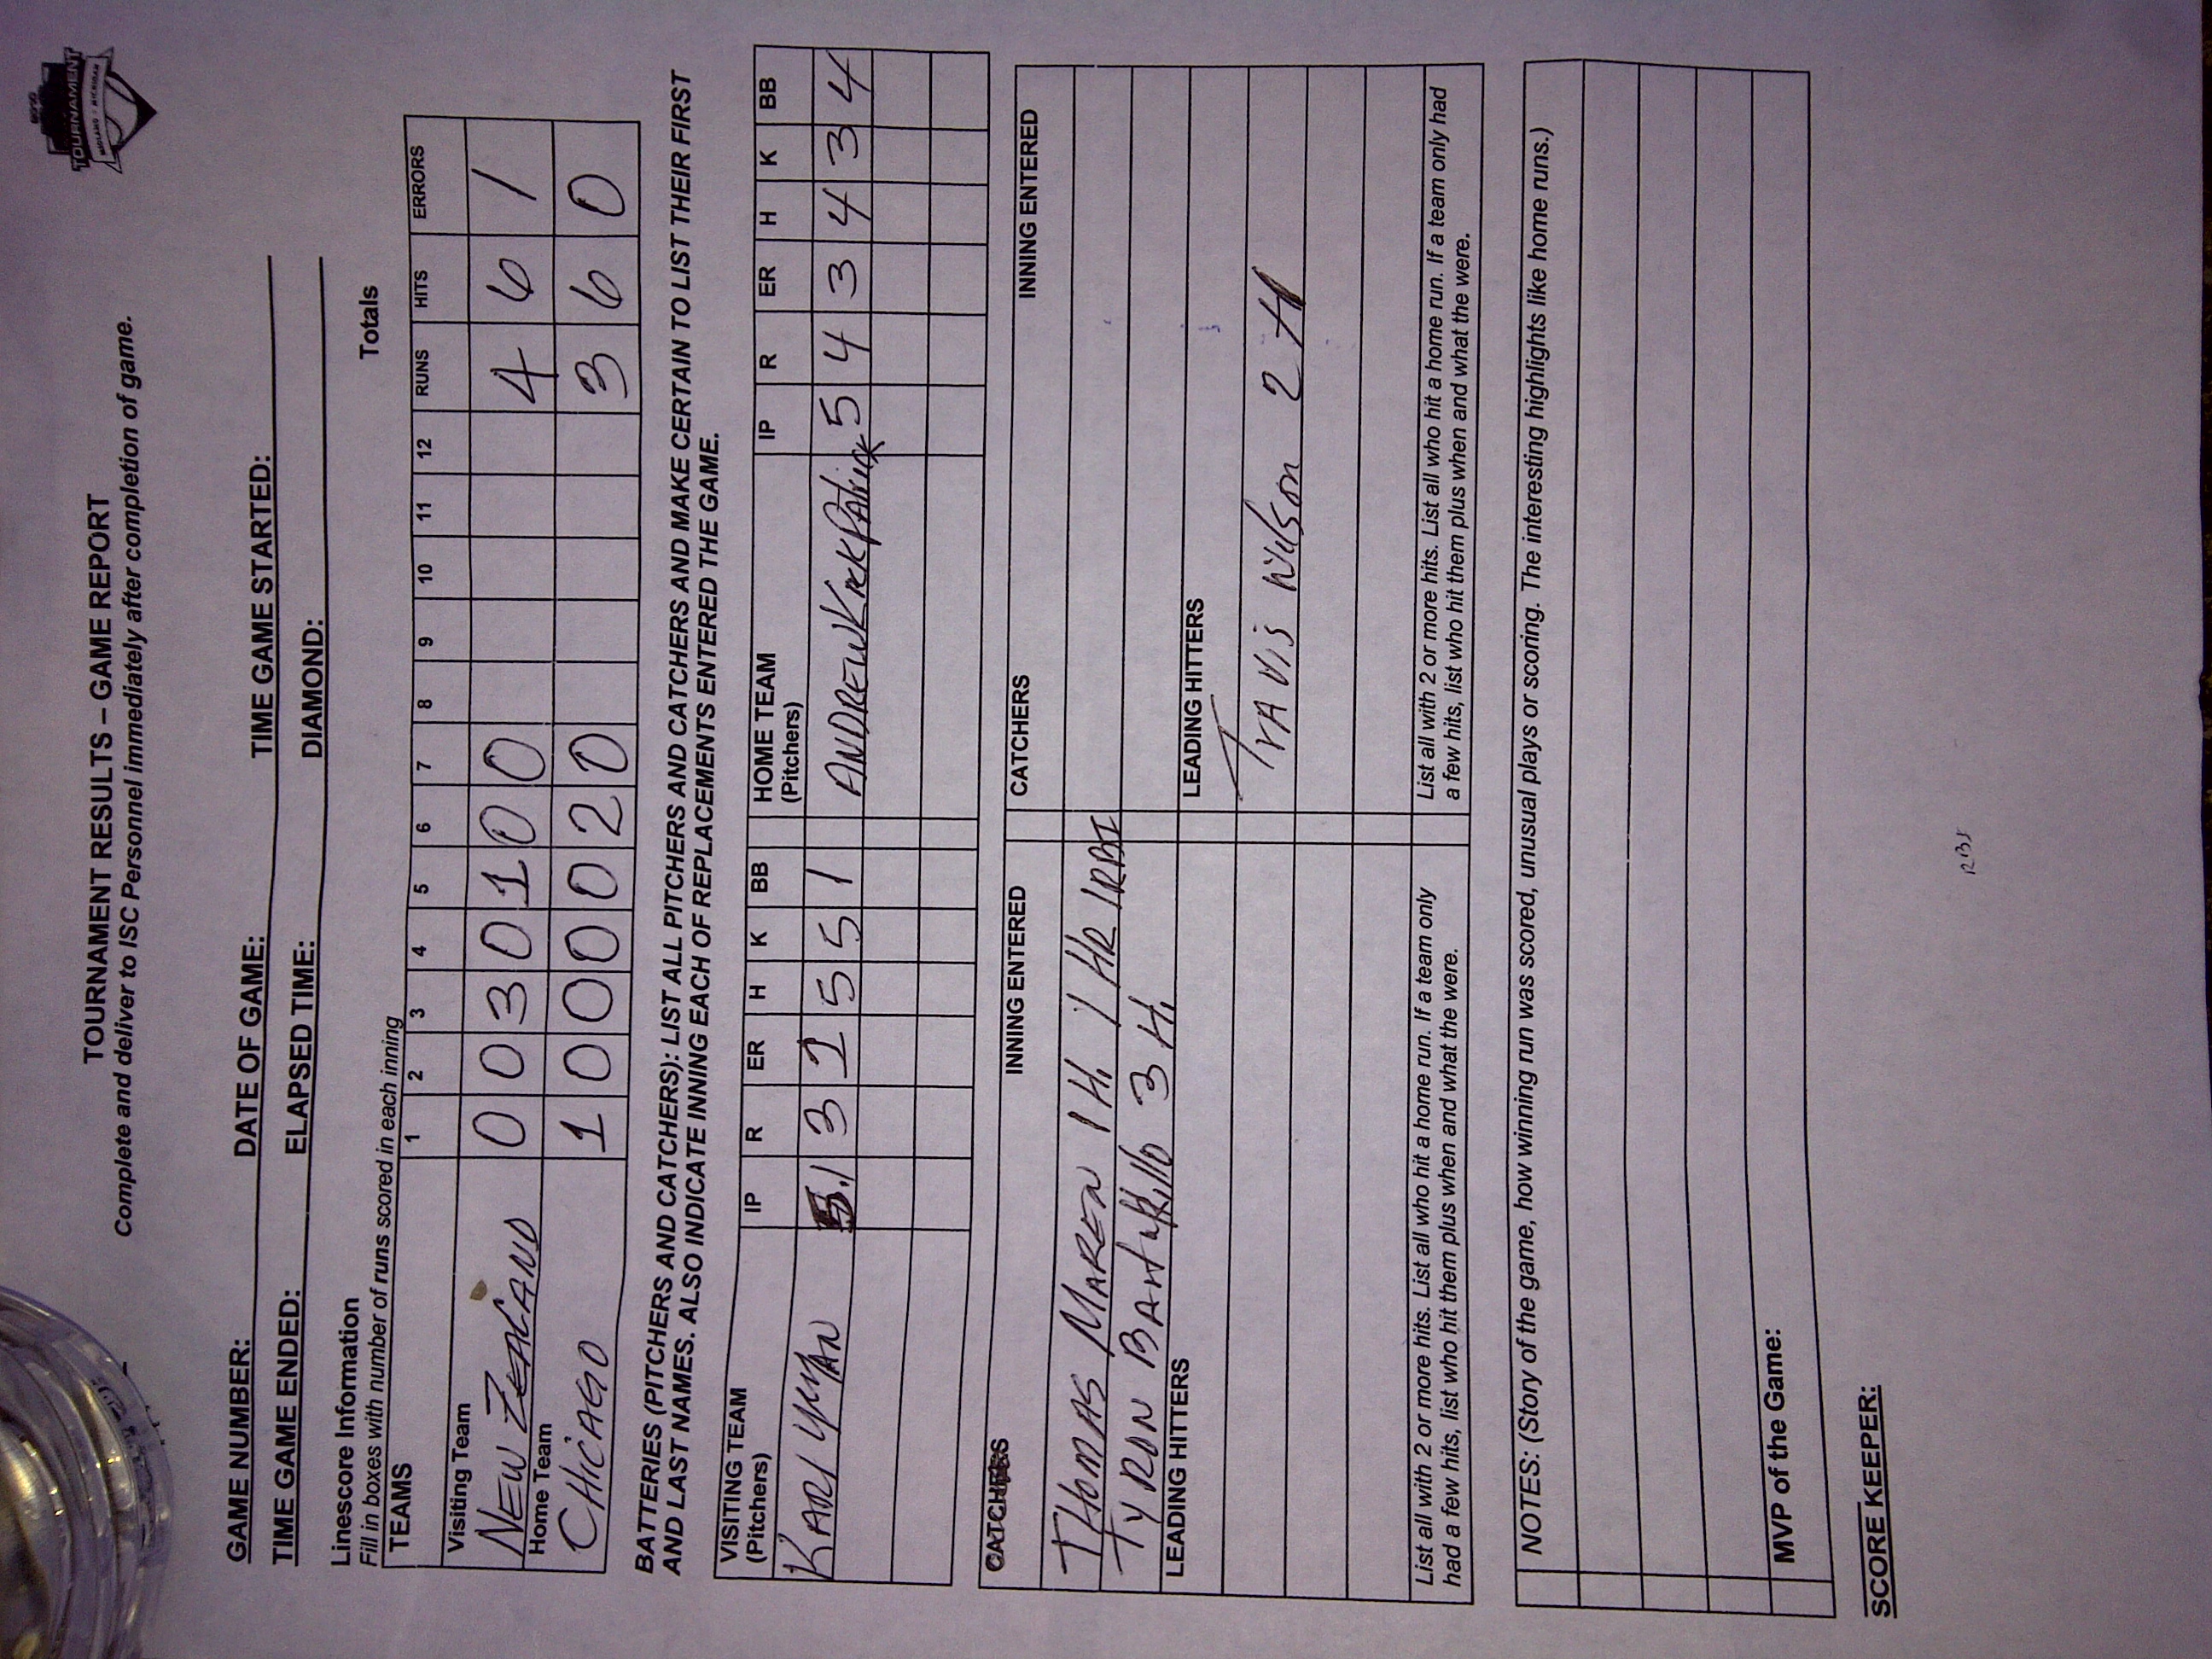 TOURNAMENT
MIDLAND • MICHIGAN
TOURNAMENT RESULTS – GAME REPORT
Complete and deliver to ISC Personnel immediately after completion of game.
GAME NUMBER: DATE OF GAME: TIME GAME STARTED:
TIME GAME ENDED: ELAPSED TIME: DIAMOND:
Linescore Information Totals
Fill in boxes with number of runs scored in each inning
TEAMS 1 2 3 4 5 6 7 8 9 10 11 12 RUNS HITS ERRORS
Visiting Team
NEW ZEALAND 0 0 3 0 1 0 0 4 6 1
Home Team
CHICAGO 1 0 0 0 0 2 0 3 6 0
BATTERIES (PITCHERS AND CATCHERS): LIST ALL PITCHERS AND CATCHERS AND MAKE CERTAIN TO LIST THEIR FIRST
AND LAST NAMES. ALSO INDICATE INNING EACH OF REPLACEMENTS ENTERED THE GAME.
VISITING TEAM IP R ER H K BB HOME TEAM IP R ER H K BB
(Pitchers) (Pitchers)
KARL 5.1 3 1 5 5 1 ANDREW KirkPAtrick 5 4 3 4 3 4
CATCHERS INNING ENTERED CATCHERS INNING ENTERED
THOMAS MAREN 1 H. 1 HR 1RBI
TYRON 3 H.
LEADING HITTERS LEADING HITTERS
TrAVis Wilson 2 H
List all with 2 or more hits. List all who hit a home run. If a team only
had a few hits, list who hit them plus when and what the were.
List all with 2 or more hits. List all who hit a home run. If a team only had
a few hits, list who hit them plus when and what the were.
NOTES: (Story of the game, how winning run was scored, unusual plays or scoring. The interesting highlights like home runs.)
MVP of the Game:
SCORE KEEPER: